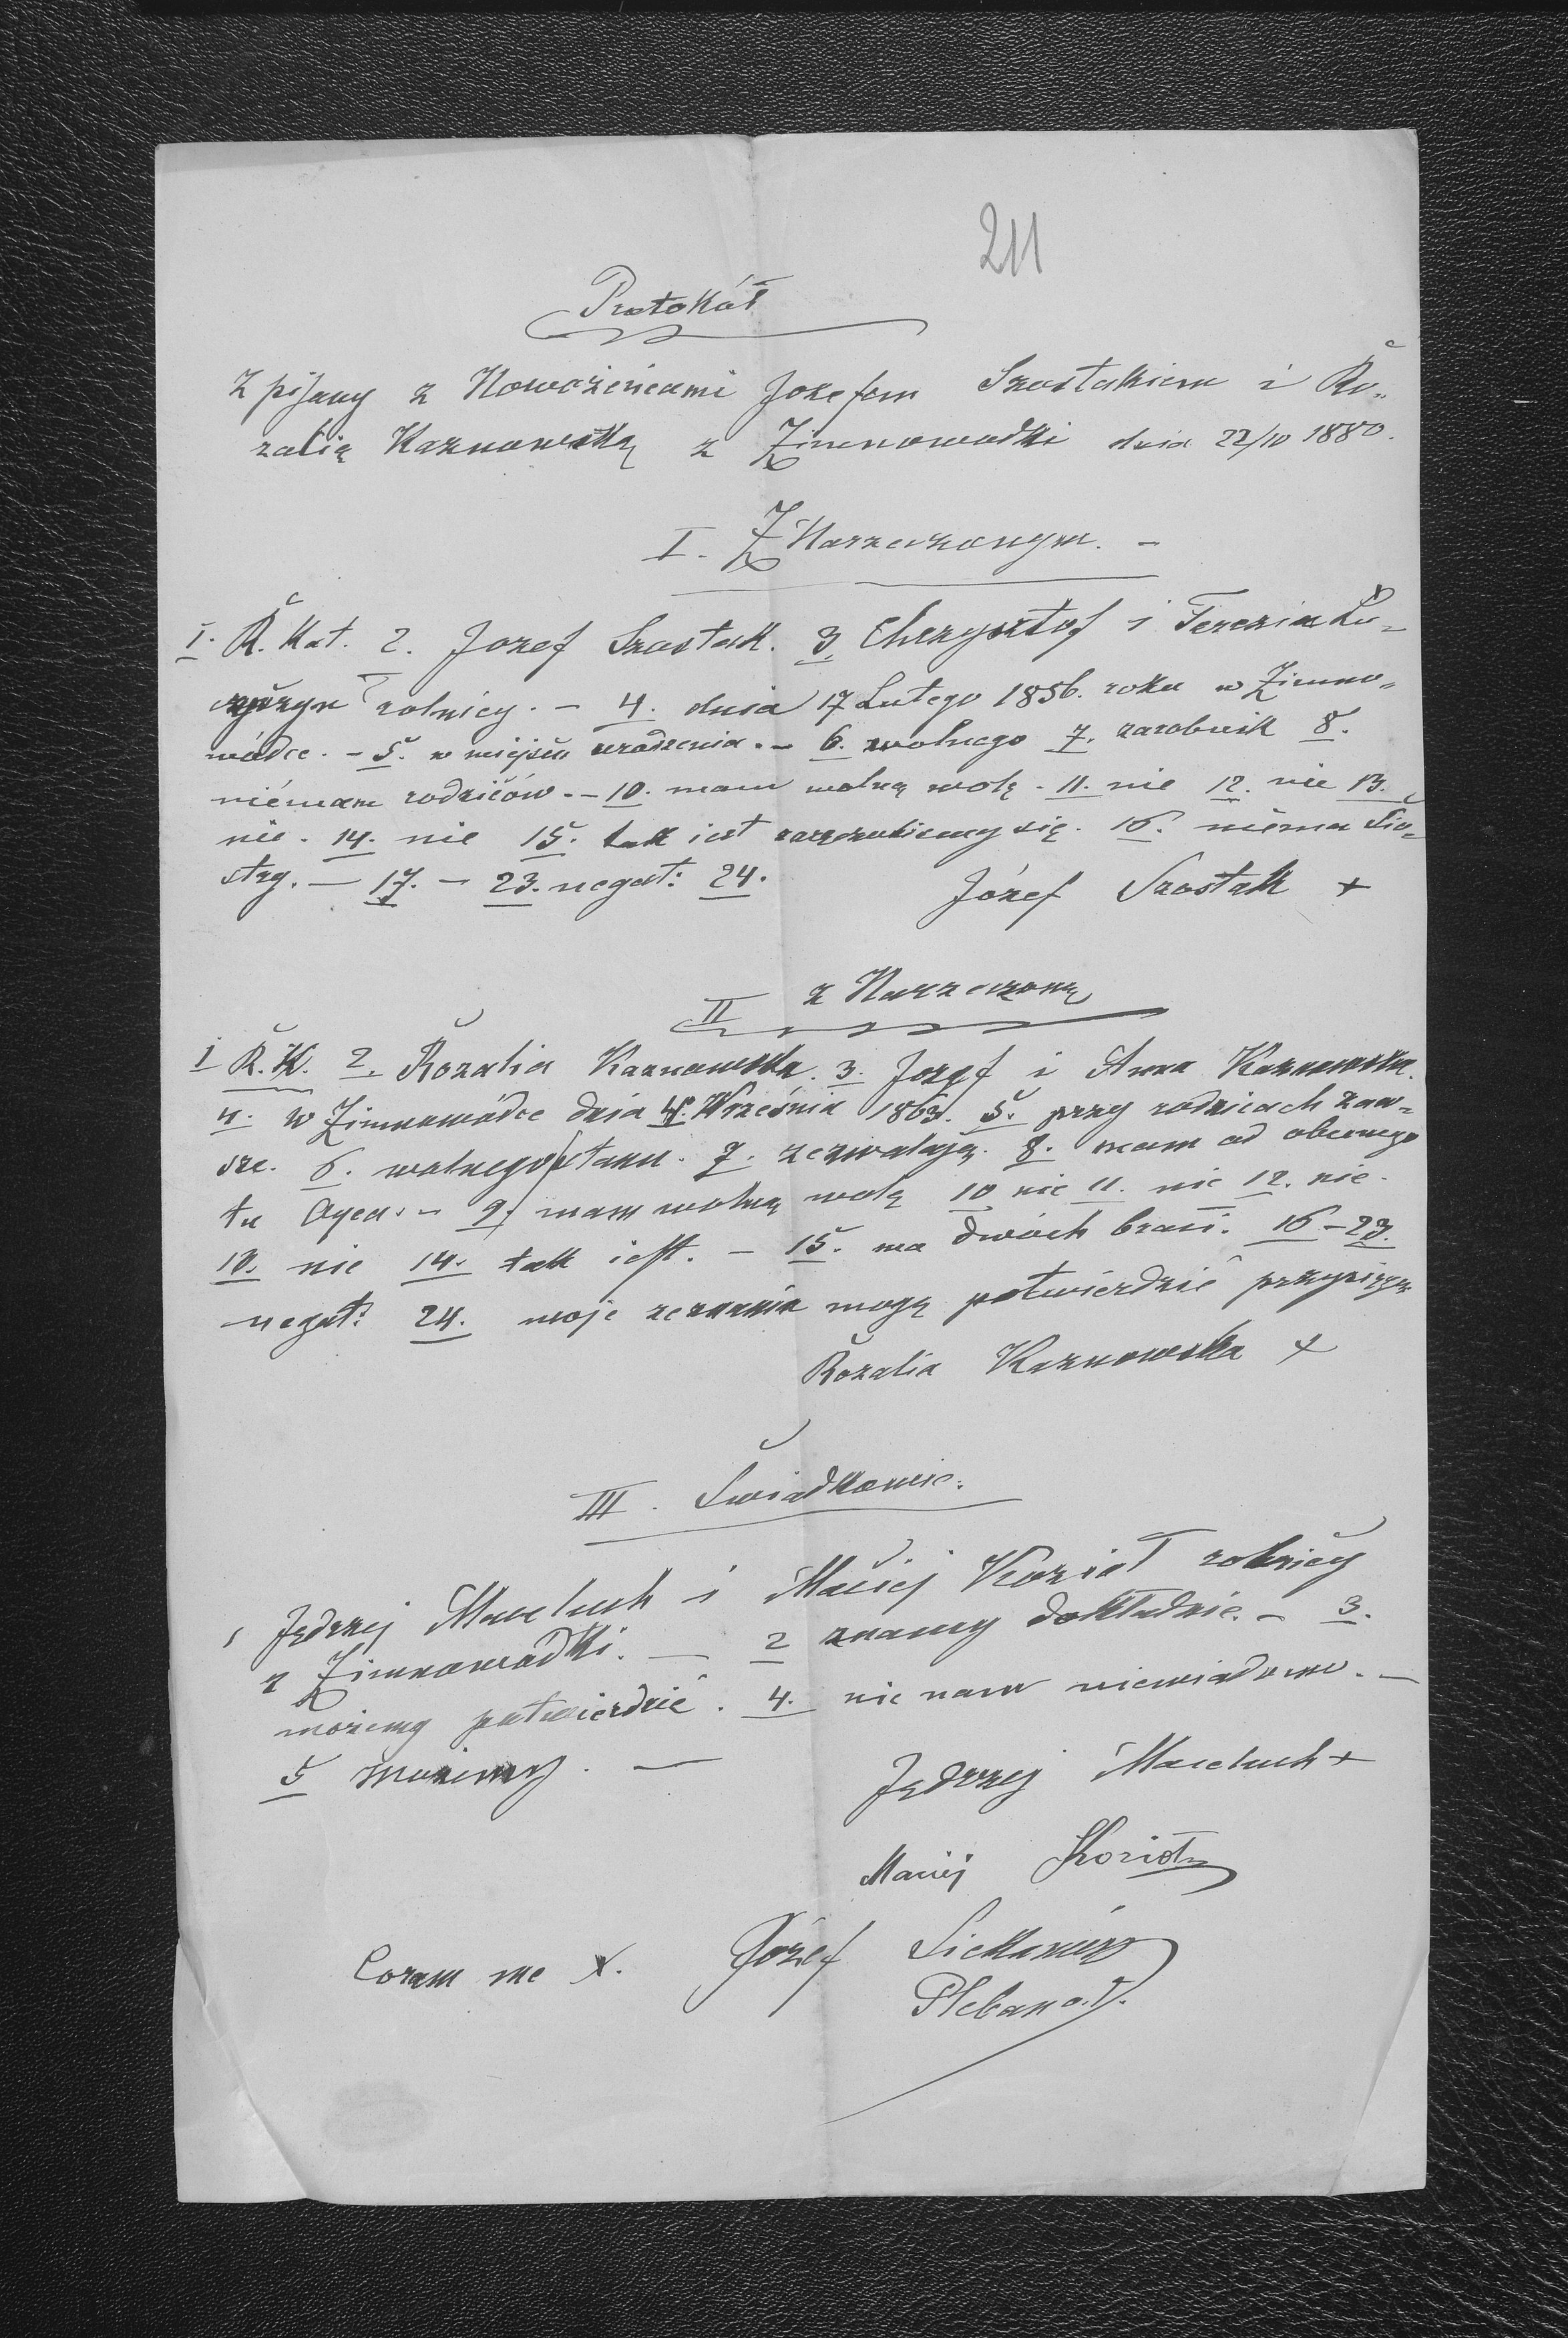 211
Protokół
Zpisany z Nowożeńcami Jozefem Szostakiem i Ro„
zalią Kaznowską z Zimnowodki dnia 22/10 1880.
I. Z Narzeczonym. –
1. R. Kat. 2. Jozef Szostak. 3. Chrzysztof i Terezia
rolnicy. – 4. dnia 17 Lutego 1856. roku w Zimno„
wódce. – 5. w miejscu urodzenia. – 6. wolnego 7. zarobnik 8.
niémam rodzićów. – 10. mam wolną wolę. 11. nie 12. nie 13.
nie. 14. nie 15. tak jest 16. niéma Sio-
stry. – 17. – 23. negat: 24.
Józef Szostak +
II z Narzeczoną
1 R. K. 2. Rozalia Kaznowska. 3. Jozef i Anna Kaznowska.
4. w Zimnowódce dnia 4. Września 1863. 5. przy rodzicach zaw-
sze. 6. wolnego stanu. 7. zezwalają. 8. mam od obecnego
tu Ojca. – 9. mam wolną wolę 10 nie 11. nie 12. nie.
13. nie 14. tak jest. – 15. ma dwóch braci. 16 – 23.
negat: 24. moje zeznania mogę potwierdzić przysięgą
Rozalia Kaznowska +
III. Świadkowie.
1 Jędrzej Maceluch i Maciej Kozioł rolnicy
z Zimnowodki. – 2 znamy dokładnie. – 3.
możemy potwierdzić. 4. nic nam niewiadomo. –
5 możemy. –
Jędrzej Maceluch +
Maciej Kozioł
Coram me X. Józef
Pleban o. ł.